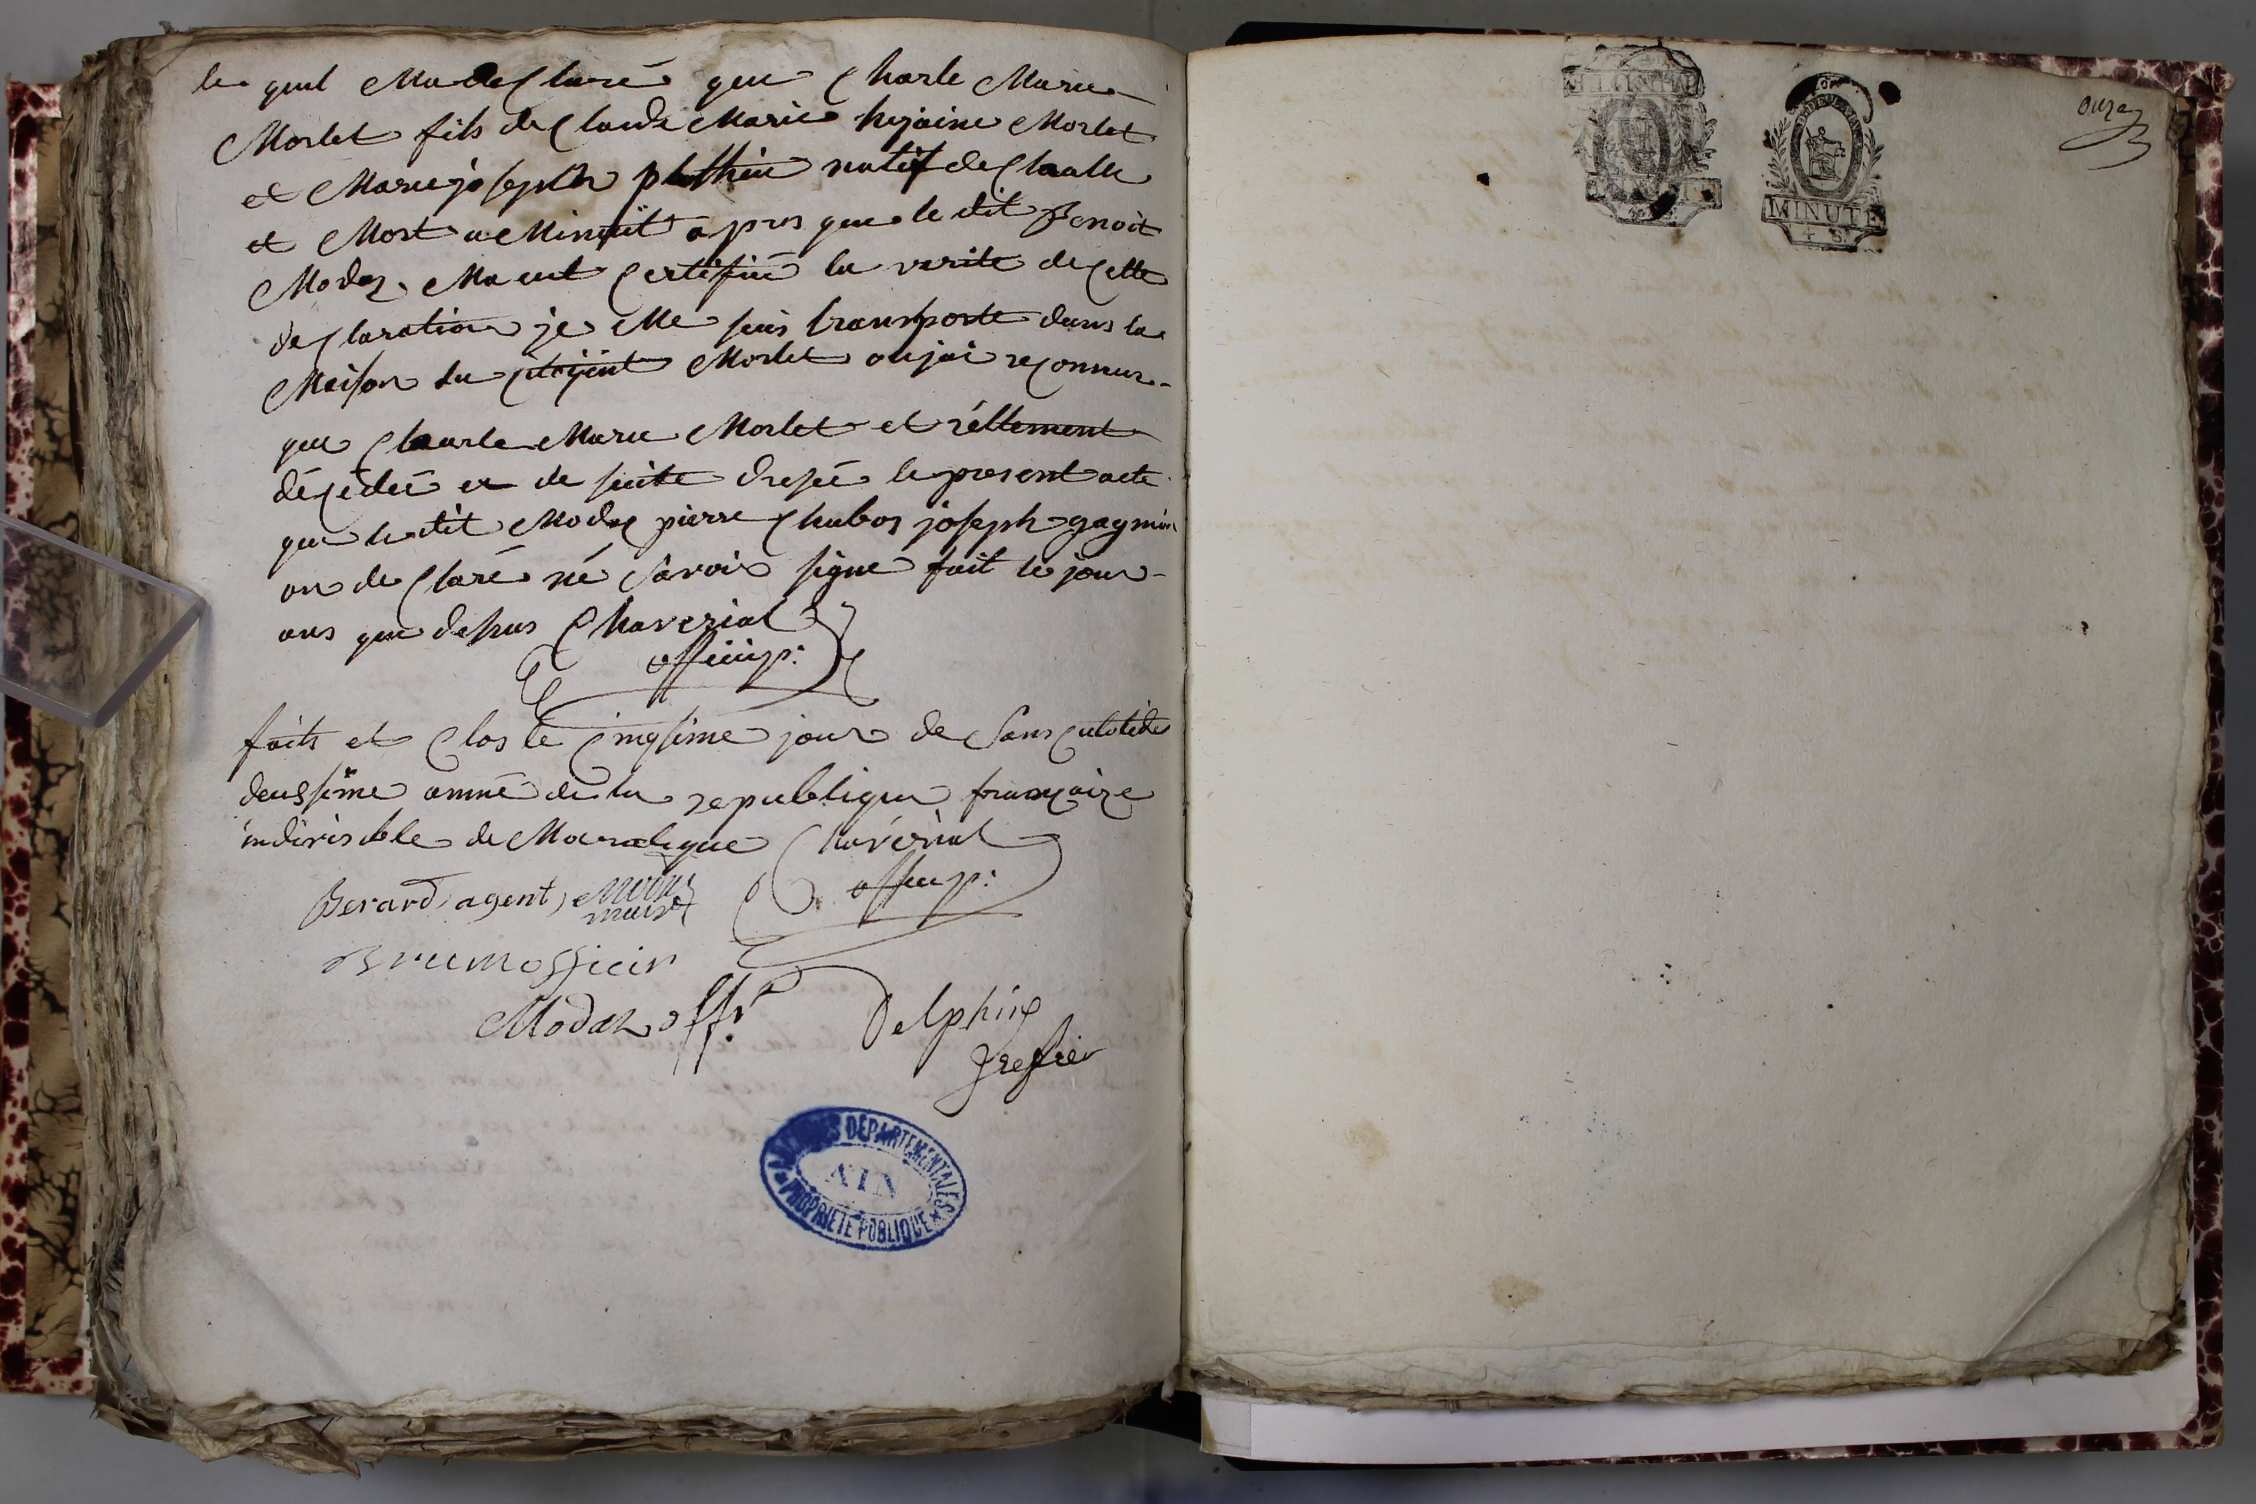 le quel Ma de Claré que Charle Marie
Morlet fils de Claude Marie hyjaine Morlet
et Marie joseph natif de
et Mort a Minuit apres que le dit Benoit
Modaz Ma eut Certifiié la verite de Cette
de Claration je Me suis transporte dans la
Maison du Morlet ou jai reConnue
que Chaarle Marie Morlet et réllement
déCédéé et de suitte dresée le present acte
que le dit Modaz pierre Chaboz joseph gagnin
on de Claré né Savoir signe fait le jour
ans que desus Chaverial
officip:
faits et Clos le Cinqsime jour de Sans Culotide
deussime anné de la republique françaize
indivisible de Maralique Chavérial
officip:
Berard agent,
maire
Brum officir
Modaz offr.
Delphin
grefier
ARCHIVES DÉPARTEMENTALES
AIN
PROPRIÉTÉ PUBLIQUE
onze
MINUTE